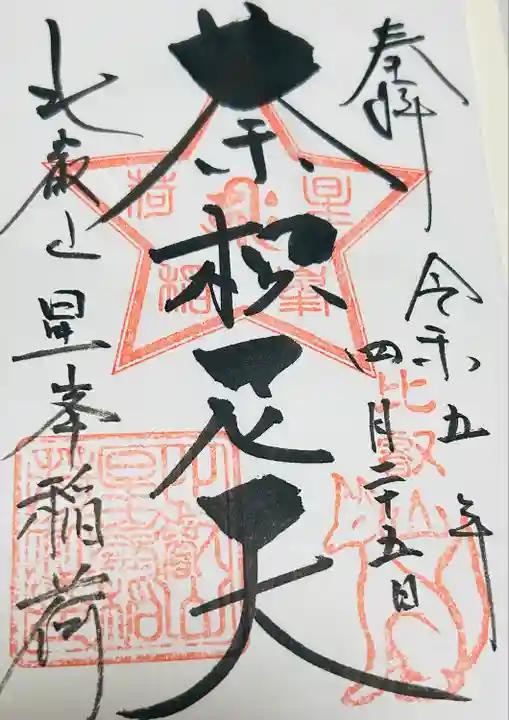 奉拝
令和五年
四月二十五日
荼枳尼天
比叡山星峯稲荷
星峯
稲荷
比叡山